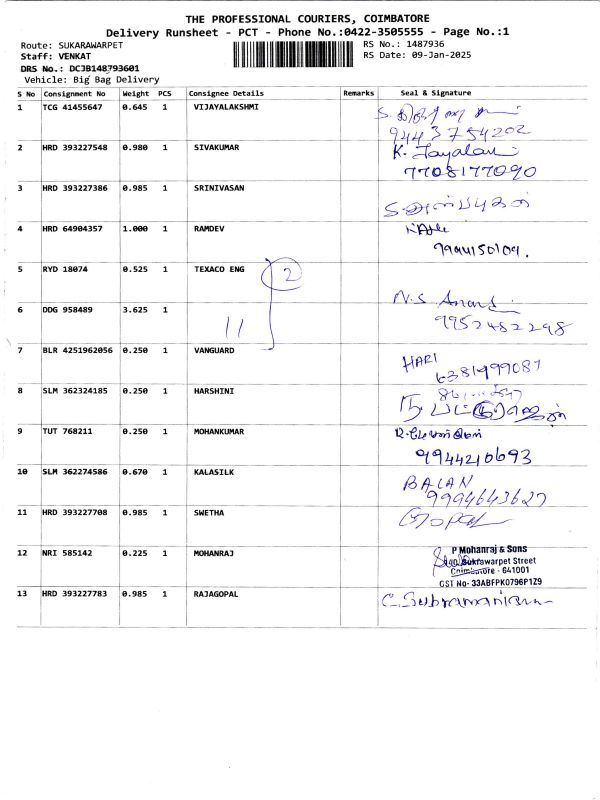 THE PROFESSIONAL COURIERS, COIMBATORE
Delivery Runsheet - PCT - Phone No.:0422-3505555 - Page No.:1
Route: SUKARAWARPET
RS No.: 1487936
Staff: VENKAT
RS Date: 09-Jan-2025
DRS No.: DCJB148793601
Vehicle: Big Bag Delivery
S No Consignment No Weight PCS Consignee Details Remarks Seal & Signature
1 TCG 41455647 0.645 1 VIJAYALAKSHMI
9443754202
2 HRD 393227548 0.980 1 SIVAKUMAR K. Jayalaxmi
7708177090
3 HRD 393227386 0.985 1 SRINIVASAN
S. அன்புகரன்
4 HRD 64904357 1.000 1 RAMDEV
9994150109.
5 RYD 18074 0.525 1 TEXACO ENG 2
N.S Anand
6 DDG 958489 3.625 1
9952482298
11
7 BLR 4251962056 0.250 1 VANGUARD
HARI
6381999087
8 SLM 362324185 0.250 1 HARSHINI
9 TUT 768211 0.250 1 MOHANKUMAR
9944210693
10 SLM 362274586 0.670 1 KALASILK
BALAN
9994643627
11 HRD 393227708 0.985 1 SWETHA
Gopal
12 NRI 585142 0.225 1 MOHANRAJ
P Mohanraj & Sons
Sukrawarpet Street
Coimbatore - 641001
GST No- 33ABFPK0796P1Z9
13 HRD 393227783 0.985 1 RAJAGOPAL C. Subramanian